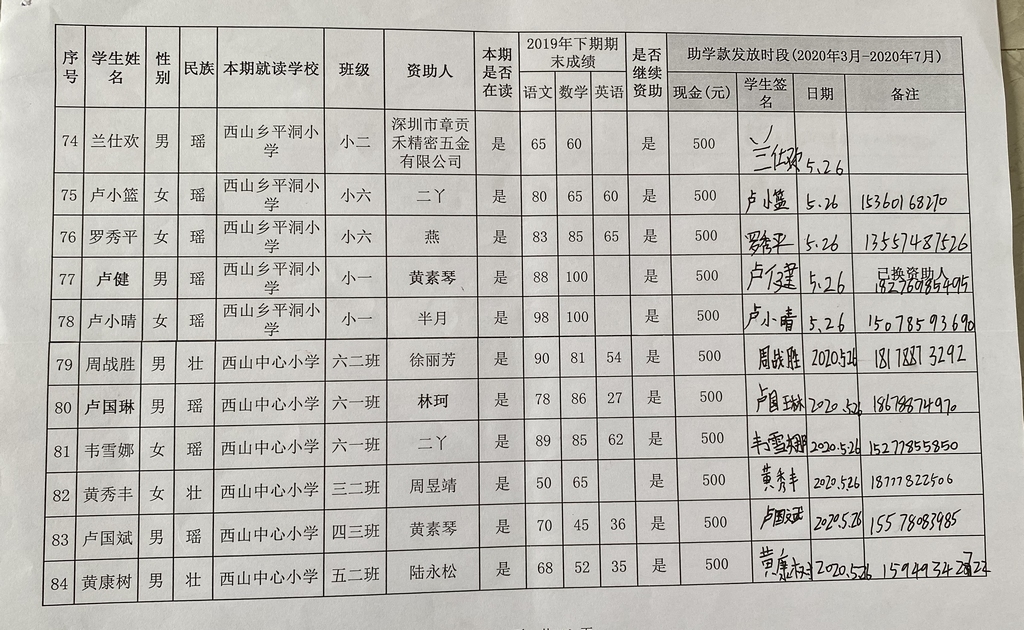 序号 学生姓名 性别 民族 本期就读学校 班级 资助人 本期是否在读 2019年下期期末成绩 是否继续资助 助学款发放时段(2020年3月-2020年7月)
语文 数学 英语 现金(元) 学生签名 日期 备注
74 兰仕欢 男 瑶 西山乡平洞小学 小二 深圳市章贡禾精密五金有限公司 是 65 60 是 500 兰仕欢 5.26
75 卢小篮 女 瑶 西山乡平洞小学 小六 二丫 是 80 65 60 是 500 卢小篮 5.26 15360168270
76 罗秀平 女 瑶 西山乡平洞小学 小六 燕 是 83 85 65 是 500 罗秀平 5.26 13557487526
77 卢健 男 瑶 西山乡平洞小学 小一 黄素琴 是 88 100 是 500 卢健 5.26 已换资助人
78 卢小晴 女 瑶 西山乡平洞小学 小一 半月 是 98 100 是 500 卢小晴 5.26 15078593690
79 周战胜 男 壮 西山中心小学 六二班 徐丽芳 是 90 81 54 是 500 周战胜 2020.5.26
80 卢国琳 男 瑶 西山中心小学 六一班 林珂 是 78 86 27 是 500 卢国琳 2020.5.26 18678874970
81 韦雪娜 女 瑶 西山中心小学 六一班 二丫 是 89 85 62 是 500 韦雪娜 2020.5.26 15277855850
82 黄秀丰 女 壮 西山中心小学 三二班 周昱靖 是 50 65 是 500 黄秀丰 2020.5.26 18777822506
83 卢国斌 男 瑶 西山中心小学 四三班 黄素琴 是 70 45 36 是 500 卢国斌 2020.5.26 15578083985
84 黄康树 男 壮 西山中心小学 五二班 陆永松 是 68 52 35 是 500 黄康树 2020.5.26